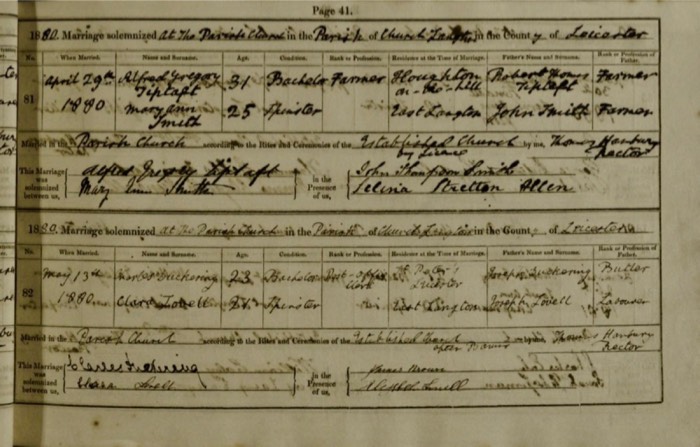 Page 41.
1880. Marriage solemnized at the Parish Church in the Parish of Church Langton in the County of Leicester
No. When Married. Name and Surname. Age. Condition. Rank or Profession. Residence at the Time of Marriage. Father's Name and Surname. Rank or Profession of Father.
81 April 29th 1880 Alfred Gregory Tiptaft 31 Bachelor Farmer Houghton on-the-hill Robert Tiptaft Farmer
Mary Ann Smith 25 Spinster East Langton John Smith Farmer
Married in the Parish Church according to the Rites and Ceremonies of the Established Church by Licence by me, Thomas Hanbury Rector
This Marriage was solemnized between us, Alfred Gregory Tiptaft
Mary Ann Smith
in the Presence of us, John Thompson Smith
Selina Stretton Allen
1880. Marriage solemnized at the Parish Church in the Parish of Church Langton in the County of Leicester
No. When Married. Name and Surname. Age. Condition. Rank or Profession. Residence at the Time of Marriage. Father's Name and Surname. Rank or Profession of Father.
82 May 13th 1880 Charles Duckering 23 Bachelor Post-office Clerk St Peter's Leicester Joseph Duckering Butler
Clara Lovell Spinster East Langton Joseph Lovell Labourer
Married in the Parish Church according to the Rites and Ceremonies of the Established Church after Banns by me, Thomas Hanbury Rector
This Marriage was solemnized between us, Charles Duckering
Clara Lovell
in the Presence of us, James Brown
Lovell